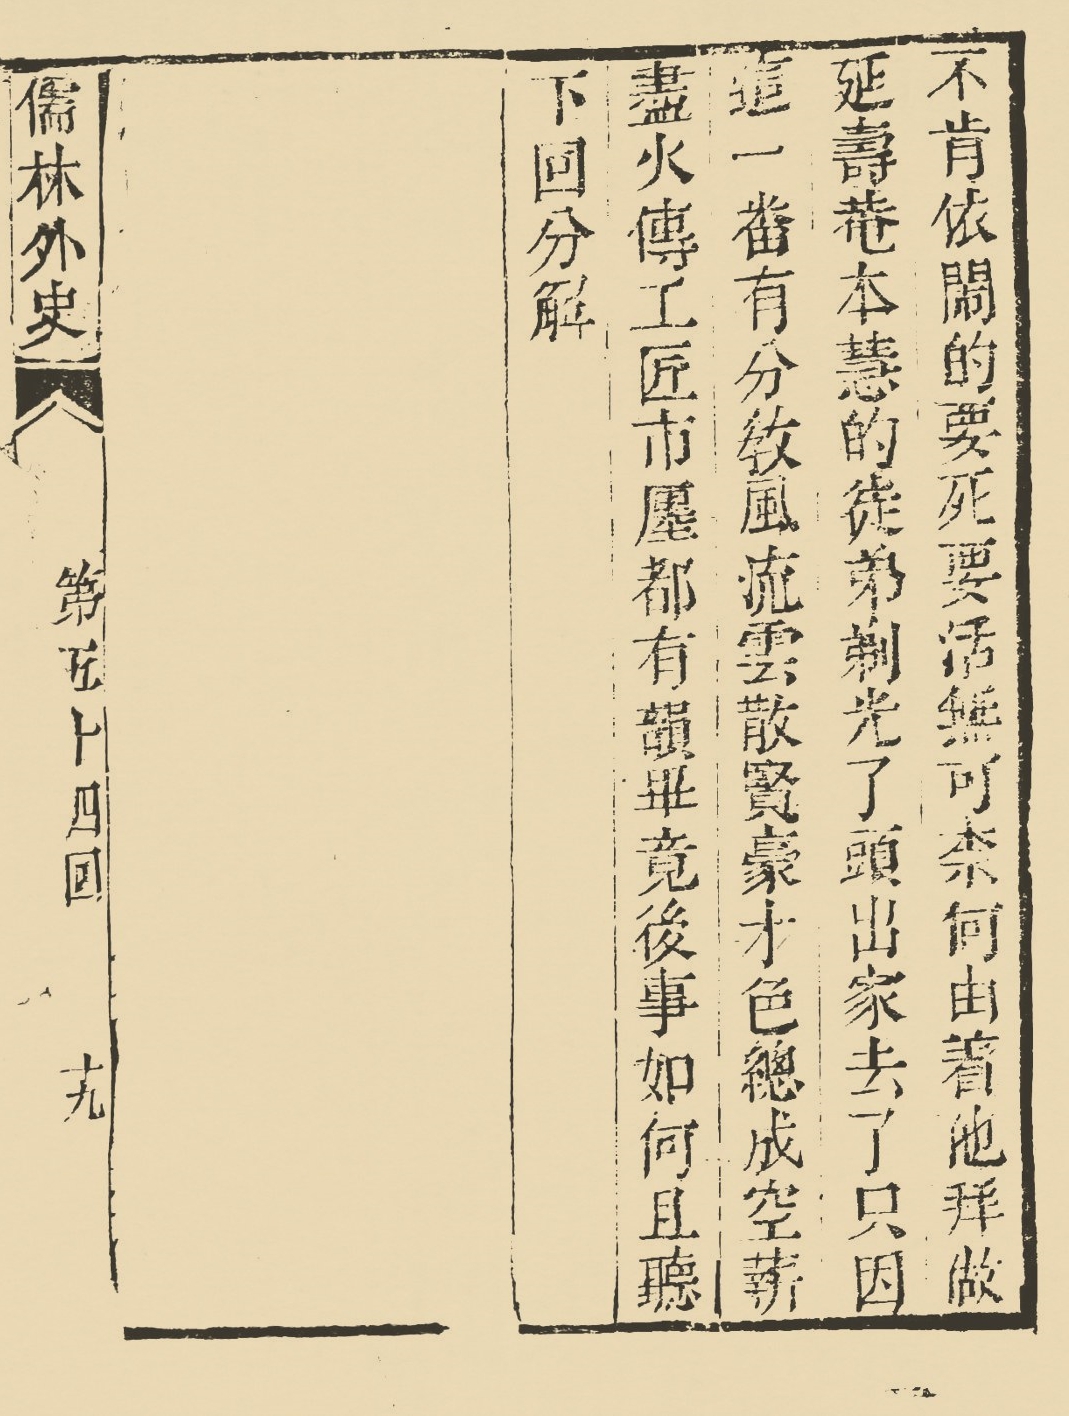 不肯依鬧的要死要活無可柰何由着他拜做
延壽菴本慧的徒弟剃光了頭出家去了只因
這一番有分敎風流雲散賢豪才色總成空薪
盡火傳工匠市廛都有韻畢竟後事如何且聽
下回分解
儒林外史
第五十四回
十九